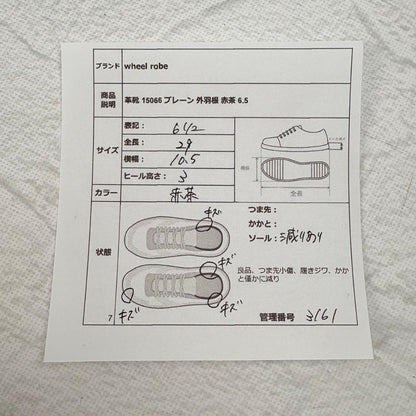 ブランド wheel robe
商品説明 革靴 15066 プレーン 外羽根 赤茶 6.5
サイズ
表記： 6 1/2
全長： 29
横幅： 10.5
ヒール高さ： 3
横幅
全長
カラー 赤茶
状態
キズ
キズ
キズ
キズ
つま先：
かかと：
ソール：減りあり
良品、つま先小傷、履きジワ、かか
と僅かに減り
7
管理番号 3161